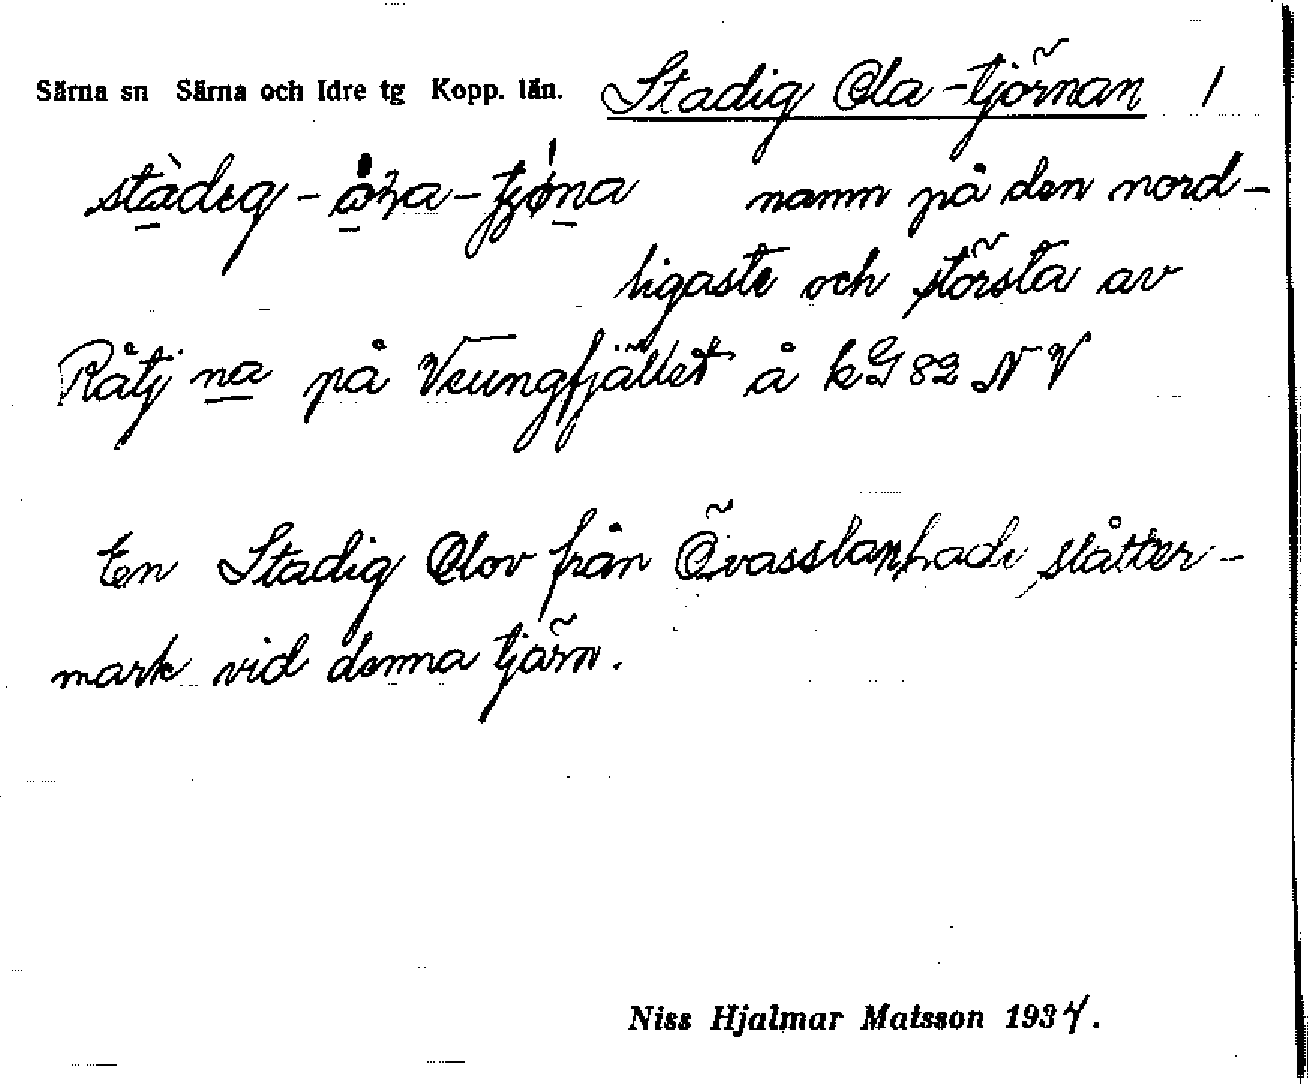 Särna sn Särna och Idre tg Kopp. län. Stadig Ola-tjörnan 1
namn på den nord-
ligaste och största av
Råtj na på Veungfjället å kG 82 NV
En Stadig Olov från hade slåtter-
mark vid denna tjärn.
Niss Hjalmar Matsson 1934.